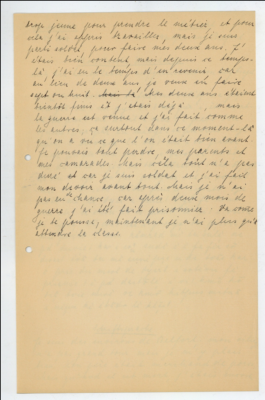 trop jeune pour prendre le métier, et pour
cela j'ai appris travailler, mais je suis
parti soldat, pour faire mes deux ans. J'
étais bien content, mais depuis ce temps-
là j'ai eu le temps d'en revenir car
au lieu de deux ans je vais en faire
sept ou huit. Mes deux ans étaient
bientôt finis et j'étais déjà, mais
la guerre est venue et j'ai fait comme
les autres, et surtout dans ce moment-là
qu'on a vu ce que l'on était bien avant
Je pouvais tout perdre, mes parents et
mes camarades. Mais cela tout n'a pas
duré et car je suis soldat et j'ai fait
mon devoir avant tout. Mais je n'ai
pas eu chance, car après deux mois de
guerre j'ai été fait prisonnier.
je te pousse, maintenant je n'ai plus qu'à
attendre la